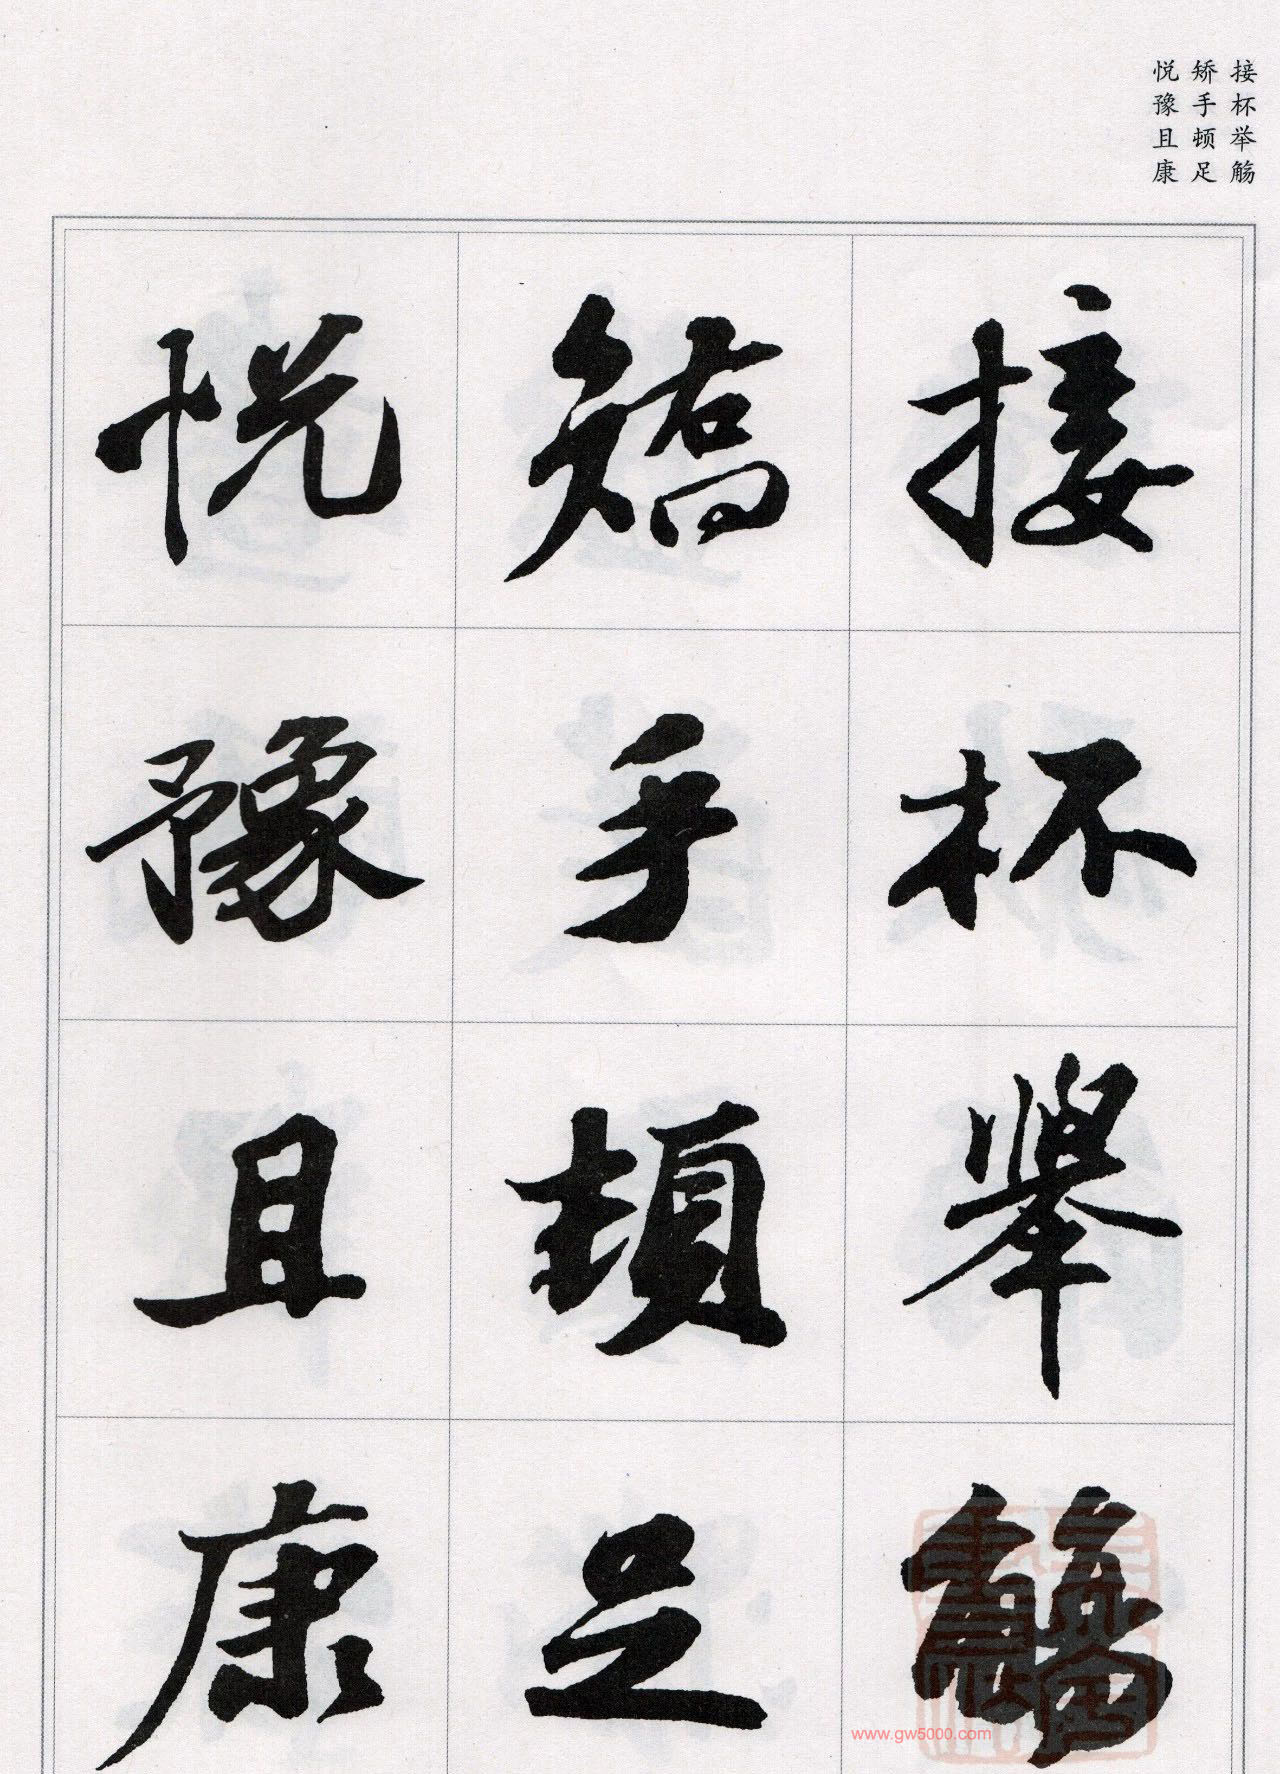 接杯举觞
矫手顿足
悦豫且康
接杯舉觴
矯手頓足
悦豫且康
www.gw5000.com